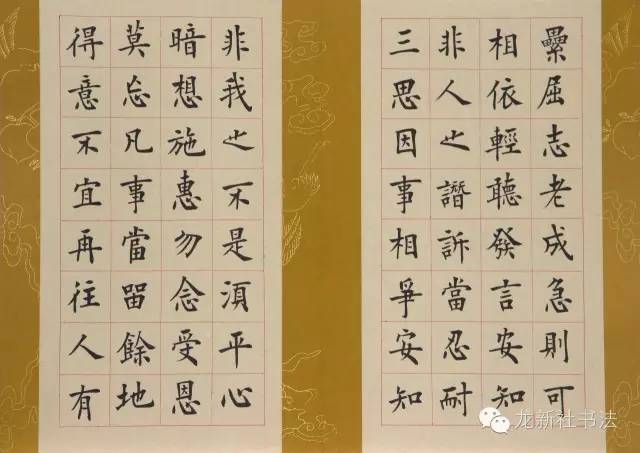 纍屈志老成急則可
相依輕聽發言安知
非人之譖訴當忍耐
三思因事相爭安知
非我之不是湏平心
暗想施惠勿念受恩
莫忘凡事當留餘地
得意不宜再往人有
龙新社书法